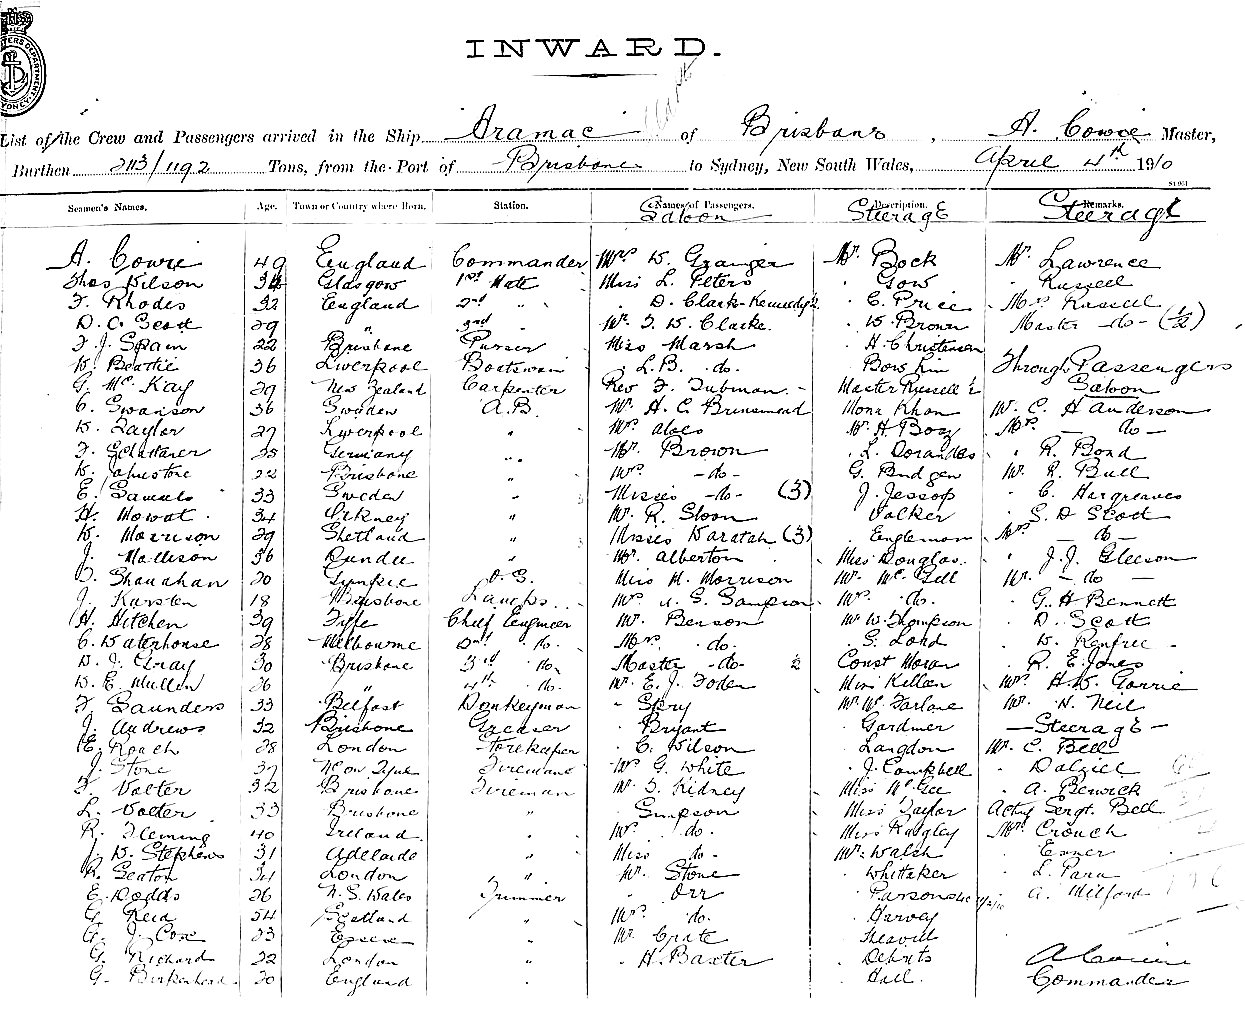 INWARD.
List of the Crew and Passengers arrived in the Ship Aramac of Brisbane, A. Cowie Master,
Burthen 2113/1192 Tons, from the Port of Brisbane to Sydney, New South Wales, April 4th 1910
Seamen's Names. Age. Town or Country where Born. Station. Names of Passengers. Description. Remarks.
Saloon Steerage Steerage
A. Cowie 49 England Commander Mrs W. Granger Mr. Bock Mr. Lawrence
Thos Wilson 34 Glasgow 1st Mate Miss L. Peters Gow Russell
F. Rhodes 32 England 2nd " D. Clark-Kennedy E. Price Mrs Russell
D. C. Scott 29 " 3rd " Mr. F. W. Clarke. W. Brown Master -do- (1/2)
F. J. Spain 22 Brisbane Purser Miss Marsh H. Christensen
W. Beattie 36 Liverpool Boatswain " L. B. do. Through Passengers
G. Mc Kay 29 New Zealand Carpenter Rev F. Tubman Master Russell Saloon
C. Swanson 36 Sweden A.B. Mr. H. C. Mona Khan Mr. C. H Anderson
W. Taylor 27 Liverpool " Mrs Mr. H. Boaz Mrs — do —
F. 25 Germany " Mr. Brown L. R. Bond
W. Johnstone 22 Brisbane " Mrs -do- G. Budgen Mr. R. Bull
E. Samuels 33 Sweden " Misses -do- (3) J. Jessop C. Hargreaves
H. Mowat 34 Orkney " Mr. R. Sloon Walker S. D Scott
W. Morrison 29 Shetland " Misses Waratah (3) Engleman Mrs — do —
J. Mollison 36 Dundee " Mr. Alberton Miss Douglas. J. J. Gleeson
D. Shanahan 20 O.S. Miss M. Morrison Mr. Mc Gill Mr. — do —
J. Karsten 18 Brisbane Lamps Sampson Mrs. do. G. H Bennett
H. Hitchen 39 Fyfe Chief Engineer Mr. Benson Mr W. Thompson D. Scott
C. Waterhouse 28 Melbourne 2nd do. Mrs. do. G. Lord W. Renfree
D. J. Gray 30 Brisbane 3rd do. Master -do- 2 Const Moran R. E. Jones
W. E Mullen 26 " 4th do. Mr. E. J. Foden Miss Killen Mrs H. W. Gorrie
F. Saunders 33 Belfast Donkeyman Spry Mr. Mc Farlane Mr. N. Neil
J. Andrews 32 Brisbane Greaser Bryant Gardiner — Steerage —
E. Roach 28 London Storekeeper C. Wilson Langdon Mr. C. Bell
J. Stone 37 Fireman Mr G. White J. Campbell Dalziel
F. Volter 32 Brisbane Fireman Mr. F. Kidney Miss Mc Gee A. Berwick
L. Volter 33 Brisbane " Simpson Miss Taylor Acting Sergt. Bell
R. Fleming 40 Ireland " Mrs. do. Miss Mrs. Crouch
J. W. Stephens 31 Adelaide " Miss do. Mr. Walsh
R. Seaton 34 London " Mr. Stone Whittaker
E. Dodds 26 N. S. Wales Trimmer Orr Parsons A. Milford
G. Reid 54 Scotland " Mrs. do. Harvey
G. J. Cox 23 Essex " Mr. Crate
G. Richard 22 London " H. Baxter
G. Birkenhead 20 England " Hall
A Cowie
Commander